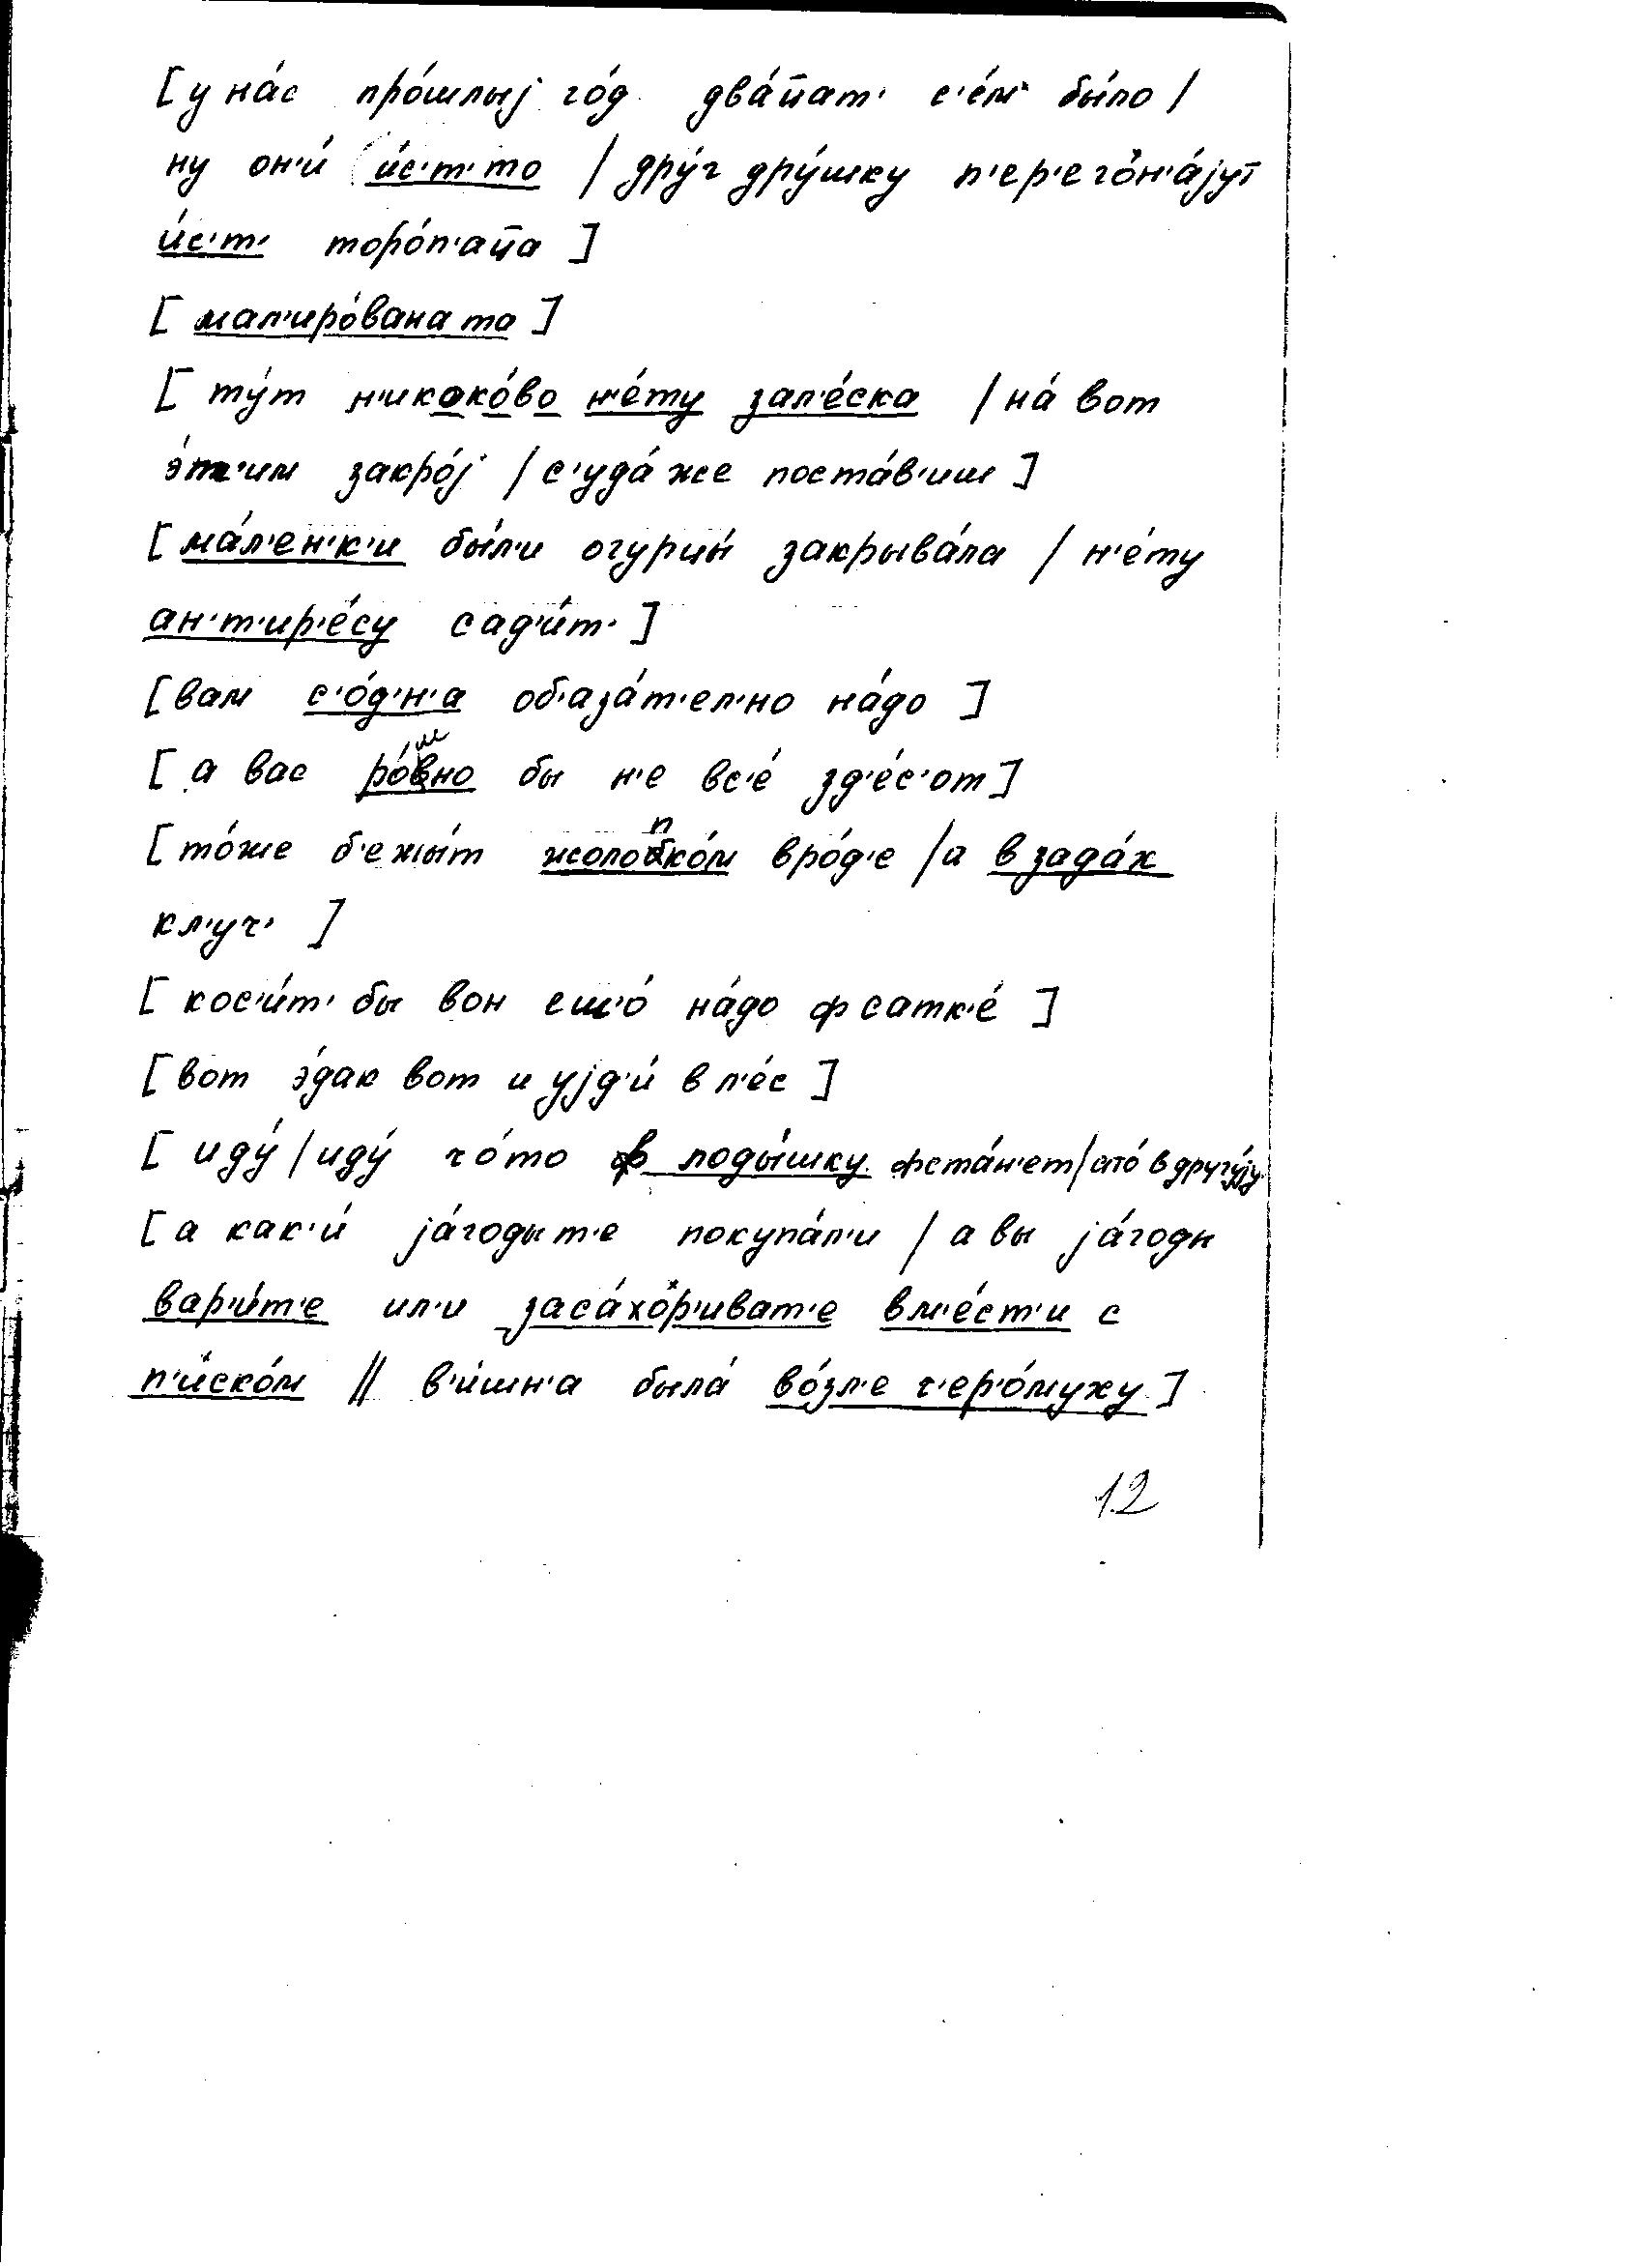 [у на́с про́шлыј го́д два́ц̄ат' с'е́м' бы́ло /
ну он'и́ и́с'т'то / дру́г дру́шку п'ер'егон'а́јут
и́с'т' торо́п'ац̄а ]
[ мал'иро́вана та ]
[ ту́т н'икако́во н'е́ту зал'е́ска / на́ вот
э́т'им закро́ј / с'уда́ же поста́в'иш ]
[ ма́л'ен'к'и бы́л'и огурцы́ закрыва́ла / н'е́ту
ан'т'ир'е́су сад'и́т' ]
[ вам с'о́д'н'а об'аза́т'ел'но на́до ]
[ а вас ро́вно бы н'е вс'е́ зд'е́с'от ]
[ то́же б'ежы́т жолопко́м вро́д'е / а в зада́х
кл'уч' ]
[ кос'и́т' бы вон еш'о́ на́до ф сатк'е́ ]
[ вот э́дак вот и ујд'и́ в л'е́с ]
[ иду́ / иду́ чо́то в лоды́шку фста́н'ет / ато́ в другу́ју
[ а как'и́ ја́годыт'е покупа́л'и / а вы ја́годы
вар'и́т'е ил'и заса́хор'иват'е вм'е́ст'и с
п'иско́м // в'и́шн'а была́ во́зл'е ч'ер'о́муху ]
12